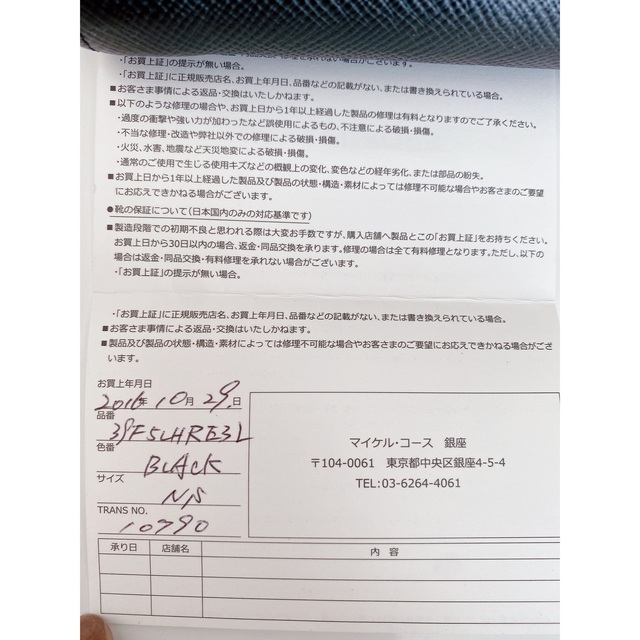 ・「お買上証」の提示が無い場合。
・「お買上証」に正規販売店名、お買上年月日、品番などの記載がない、または書き換えられている場合。
■お客さま事情による返品・交換はいたしかねます。
■以下のような修理の場合や、お買上日から1年以上経過した製品の修理は有料となりますのでご了承ください。
・過度の衝撃や強い力が加わったなど誤使用によるもの、不注意による破損・損傷。
・不当な修理・改造や弊社以外での修理による破損・損傷。
・火災、水害、地震など天災地変による破損・損傷。
・通常のご使用で生じる使用キズなどの概観上の変化、変色などの経年劣化、または部品の紛失。
■お買上日から1年以上経過した製品及び製品の状態・構造・素材によっては修理不可能な場合やお客さまのご要望
にお応えできかねる場合がございます。
●靴の保証について(日本国内のみの対応基準です)
■製造段階での初期不良と思われる際は大変お手数ですが、購入店舗へ製品とこの「お買上証」をお持ちください。
お買上日から30日以内の場合、返金・同品交換を承ります。修理の場合は全て有料修理となります。ただし、以下の
場合は返金・同品交換・有料修理を承れない場合がございます。
・「お買上証」の提示が無い場合。
・「お買上証」に正規販売店名、お買上年月日、品番などの記載がない、または書き換えられている場合。
■お客さま事情による返品・交換はいたしかねます。
■製品及び製品の状態・構造・素材によっては修理不可能な場合やお客さまのご要望にお応えできかねる場合がござ
います。
お買上年月日
2016年 10月 29日
品番
39F5LHRE3L
色番
BLACK
サイズ
N/S
TRANS NO.
10790
マイケル・コース 銀座
〒104-0061 東京都中央区銀座4-5-4
TEL:03-6264-4061
承り日 店舗名 内容